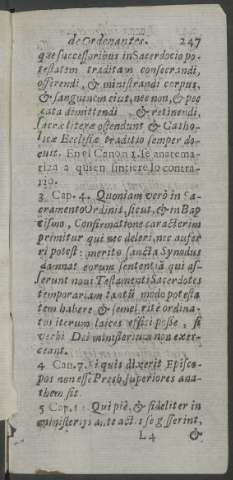 de Ordenantes. 247
que successoribus in Sacerdocio po-
testatem traditam consecrandi,
offerendi, & ministrandi corpus,
& sanguinem eius, nec non, & pec
cata dimittendi, & retinendi,
sacræ literæ ostendunt & Catho-
licæ Ecclesiæ traditio semper do-
cuit. En el Canon 1. se anatema-
tiza a quien sintiere lo contra-
rio.
3 Cap. 4. Quoniam verò in Sa-
cramento Ordinis, sicut, & in Bap
tismo, Confirmatione caracter im
primitur qui nec deleri, nec aufer
ri potest: meritò sancta Synodus
damnat eorum sententiã qui as-
serunt noui Testamenti Sacerdotes
temporariam tantũ modo potesta
tem habere & semel ritè ordina-
tos iterum laicos effici posse, si
verbi Dei ministerium non exer-
ceant.
4 Can. 7. Si quis dixerit Episco-
pos non esse Presb. superiores ana
them sit.
5 Cap. Qui piè, & fideliter in
ministerijs ante actis se gesserint,
L4 &